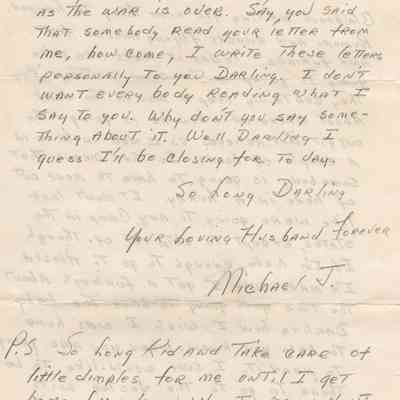 AS THE WAR IS OVER. SAY, YOU SAID
THAT SOMEBODY READ YOUR LETTER FROM
ME, HOW COME, I WRITE THESE LETTERS
PERSONALLY TO YOU DARLING. I DON'T
WANT EVERY BODY READING WHAT I
SAY TO YOU. WHY DON'T YOU SAY SOME-
THING ABOUT IT. WELL DARLING I
GUESS I'LL BE CLOSING FOR TO DAY.
SO LONG DARLING
YOUR LOVING HUSBAND FOREVER
Michael J.
P.S. SO LONG KID AND TAKE CARE OF
little dimples for me UNTIL I GET